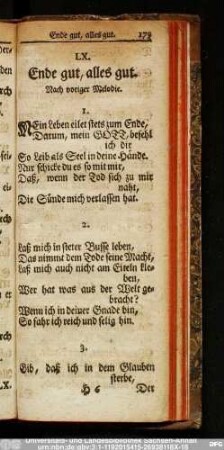 Ende gut, alles gut. 179
LX.
Ende gut, alles gut.
Nach voriger Melodie.
1.
MEin Leben eilet stets zum Ende,
Darum, mein GOTT, befehl
ich dir
So Leib als Seel in deine Hände.
Nur schicke du es so mit mir,
Daß, wenn der Tod sich zu mir
naht,
Die Sünde mich verlassen hat.
2.
Laß mich in steter Busse leben,
Das nimmt dem Tode seine Macht,
Laß mich auch nicht am Eiteln kle-
ben,
Wer hat was aus der Welt ge-
bracht?
Wenn ich in deiner Gnade bin,
So fahr ich reich und selig hin.
3.
Gib, daß ich in dem Glauben
sterbe,
H 6 Der
Universitäts- und Landesbibliothek Sachsen-Anhalt
DFG